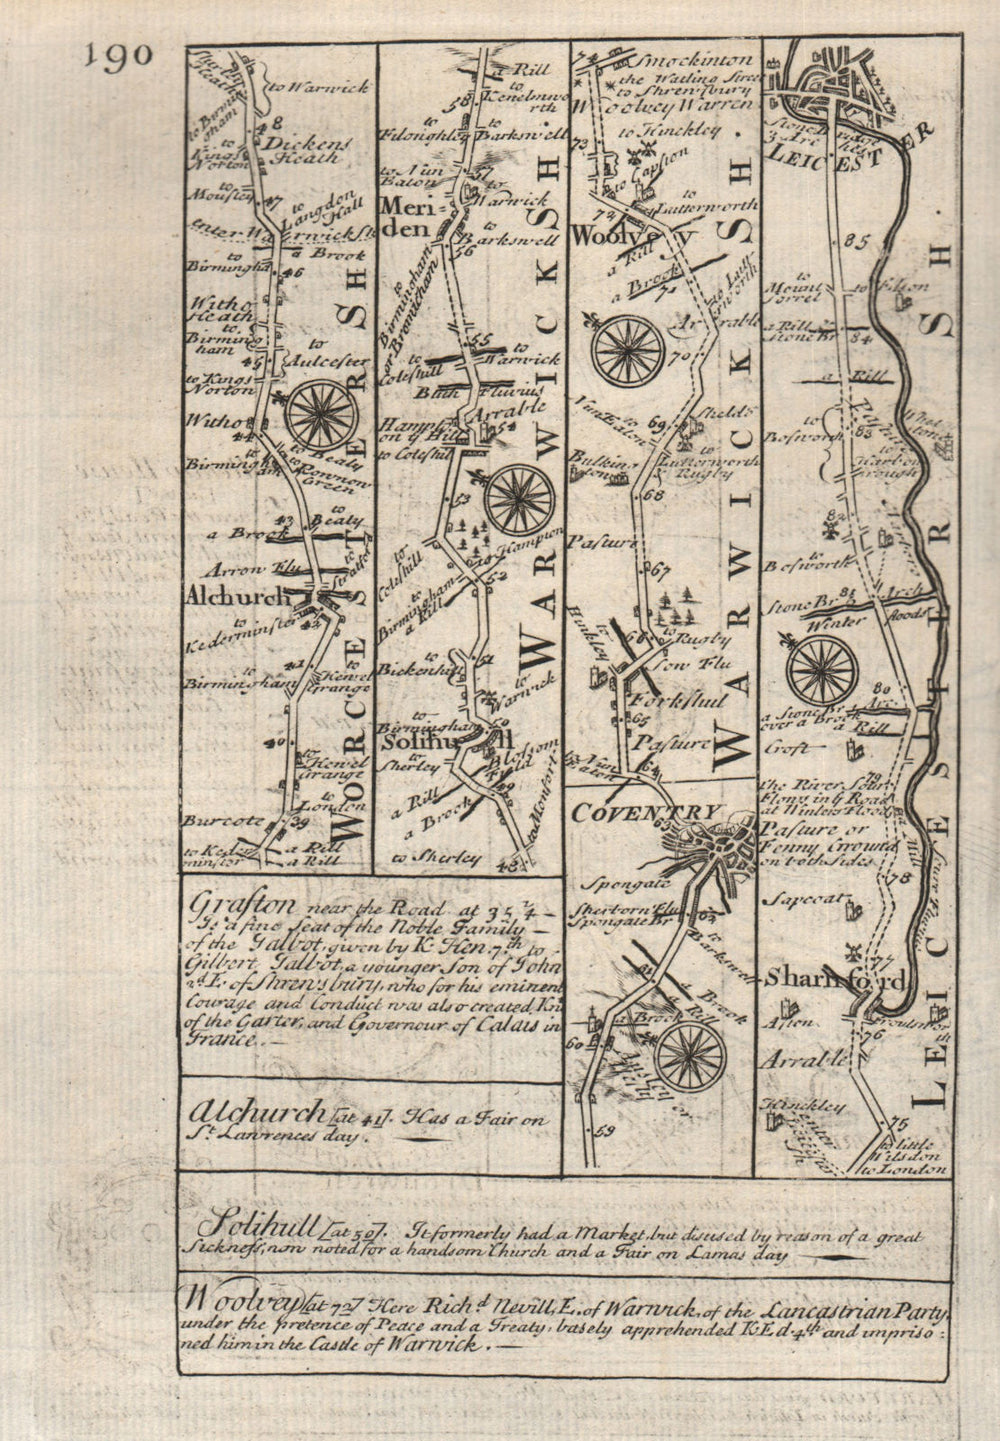 190
to Warwick
48
Dickens
Heath
to
Kings
Norton
47
to
Langdon
Hall
a Brook
to
Birmingha
46
Witho
Heath
to
Birming
ham
to
Aulcester
45
to Kings
Norton
Witho
44
to
Birmingh
am
to Bealy
to
Rownon
Green
43
to
Bealy
a Brook
Arrow Flu
to
Stratford
Alchurch
42
to
Kederminster
41
to
Birmingham
to
Kewel
Grange
40
to
Hewel
Grange
to
London
39
Burcote
to Keder
minster
a Rill
a Rill
WORCESTERSHR
a Rill
to
Kenelmwo
rth
58
to
Filoughley
to
Barkswell
to Nun
Eaton
57
to
Warwick
Meri-
den
to
Barkswell
56
to
Birmingham
or Bromicham
55
to
Warwick
to
Coleshill
Blith Fluvius
Arrable
Hampt
on y Hill
54
to Coleshill
53
to
Hampton
to
Coleshill
52
to
Birmingham
a Rill
51
to
Bickenhill
to
Warwick
50
to
Birmingham
Solihull
to
Sherley
Blosom
Field
49
a Rill
a Brook
to Monfort
to Sherley
48
WARWICKSH
74
Smockinton
the Watling Street
to Shrewsbury
Woolvey Warren
to Hinckley
73
to Capston
to
Lutterworth
72
Woolvey
a Rill
a Brook
71
to Lutt
erworth
Arrable
70
Shelds
69
to
Nun Eaton
to
Lutterworth
to
Rugby
Bulking
ton
68
Pasture
67
to
Hinkley
66
to
Rugby
Sow Flu
Forkshul
65
Pasture
to Nun
Eaton
64
COVENTRY
63
Spongate
Sherborn Flu
Spongate Br
62
to
Barkswell
61
a Brook
a Rill
a Brook
60
59
WARWICKSH
Stone Bridge
3 Arches
LEICESTER
85
to
Mount
Sorrel
to Filson
a Rill
Stone Br
84
a Rill
to
Bosworth
83
Whet
stone
to
Harbo
rough
82
to
Bosworth
Stone Br
81
Arch
Winter floods
80
a Stone Br
Arc
over a Brook
a Rill
Croft
79
the River Sour
Flows in y Road
at Winters Floods
Pasture or
Fenny Ground
on both Sides
78
Sapcoat
77
Sharnford
Aston
76
Arrable
Hinckley
75
to little
Wilsdon
to London
LEICESTERSH
Grafton near the Road at 35 1/4 —
Is a fine Seat of the Noble Family —
of the Talbot, given by K. Hen. 7th to
Gilbert Talbot, a younger Son of John
2d E. of Shrewsbury, who for his eminent
Courage and Conduct was also created Knt
of the Garter, and Governour of Calais in
France. —
Alchurch [at 41]. Has a Fair on
St. Lawrences day.
Solihull [at 50]. It formerly had a Market, but disused by reason of a great
Sickness, now noted for a handsom Church and a Fair on Lamas day
Woolvey [at 72] Here Richd Nevill, E. of Warwick, of the Lancastrian Party,
under the pretence of Peace and a Treaty, basely apprehended K. Ed. 4th and impriso=
ned him in the Castle of Warwick. —